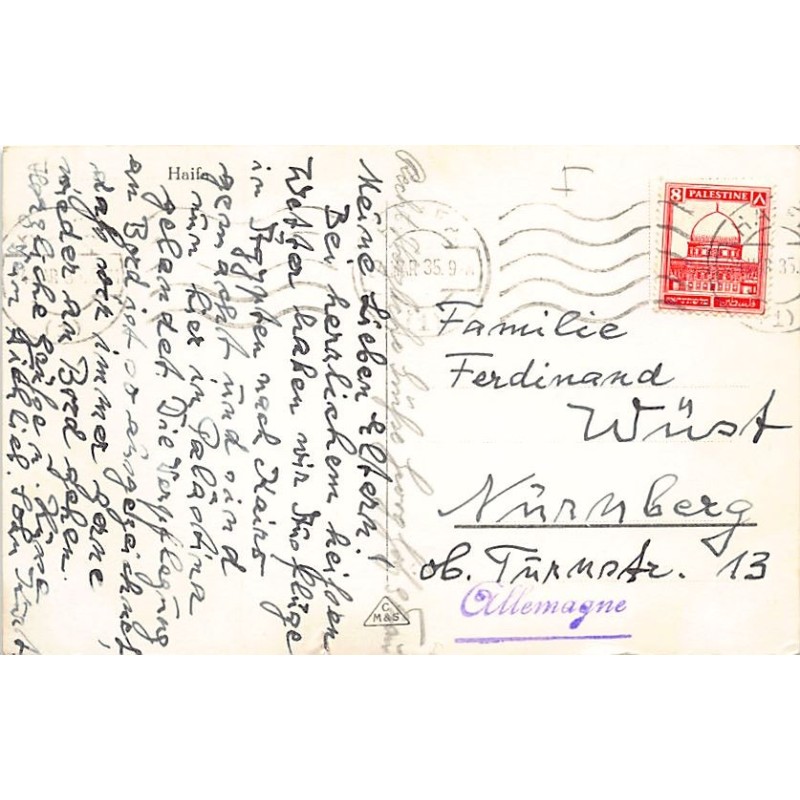 Haifa
Meine Lieben Eltern!
Bei herrlichem heißen
Wetter haben wir Ausflüge
in Ägypten nach Kairo
gemacht und sind
nun hier in Palästina
gelandet. Die Verpflegung
an Bord ist so ausgezeichnet
daß wir immer gerne
wieder an Bord gehen.
Herzliche Grüße u. Küsse
Sohn
Recht herzliche Grüße
C
M&S
I
AR 35. 9
8 PALESTINE ٨
فلسطين
Familie
Ferdinand
Wüst
Nürnberg
ob. Turnstr. 13
Allemagne